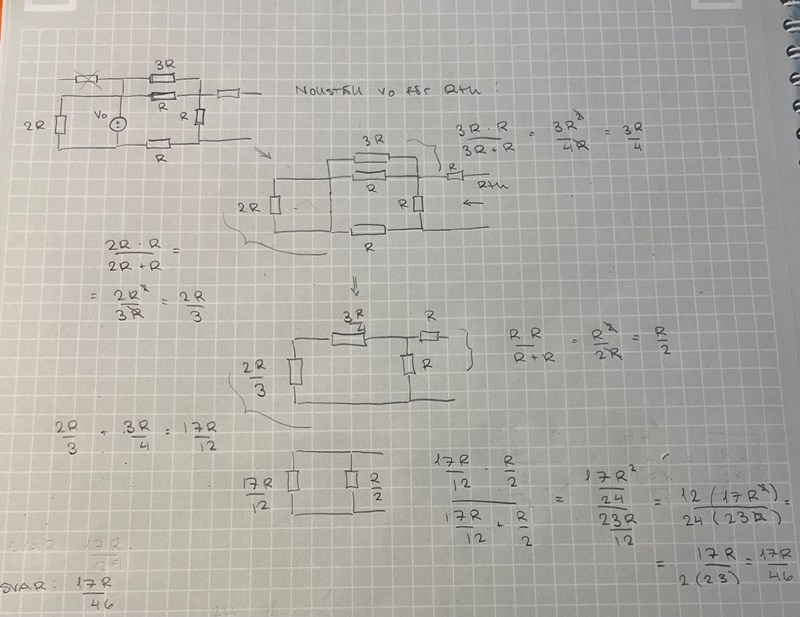 3R
Nollställ V0 för Rth:
R
2R
V0
R
R
3R · R / 3R + R = 3R² / 4R = 3R / 4
3R
R
R
Rth
2R
R
R
2R · R / 2R + R =
= 2R² / 3R = 2R / 3
3R / 4
R
2R / 3
R
R R / R + R = R² / 2R = R / 2
2R / 3 + 3R / 4 = 17R / 12
17R / 12
R / 2
17R / 12 · R / 2 / 17R / 12 + R / 2 = 17R² / 24 / 23R / 12 = 12 (17R²) / 24 (23R) =
= 17R / 2(23) = 17R / 46
SVAR: 17R / 46